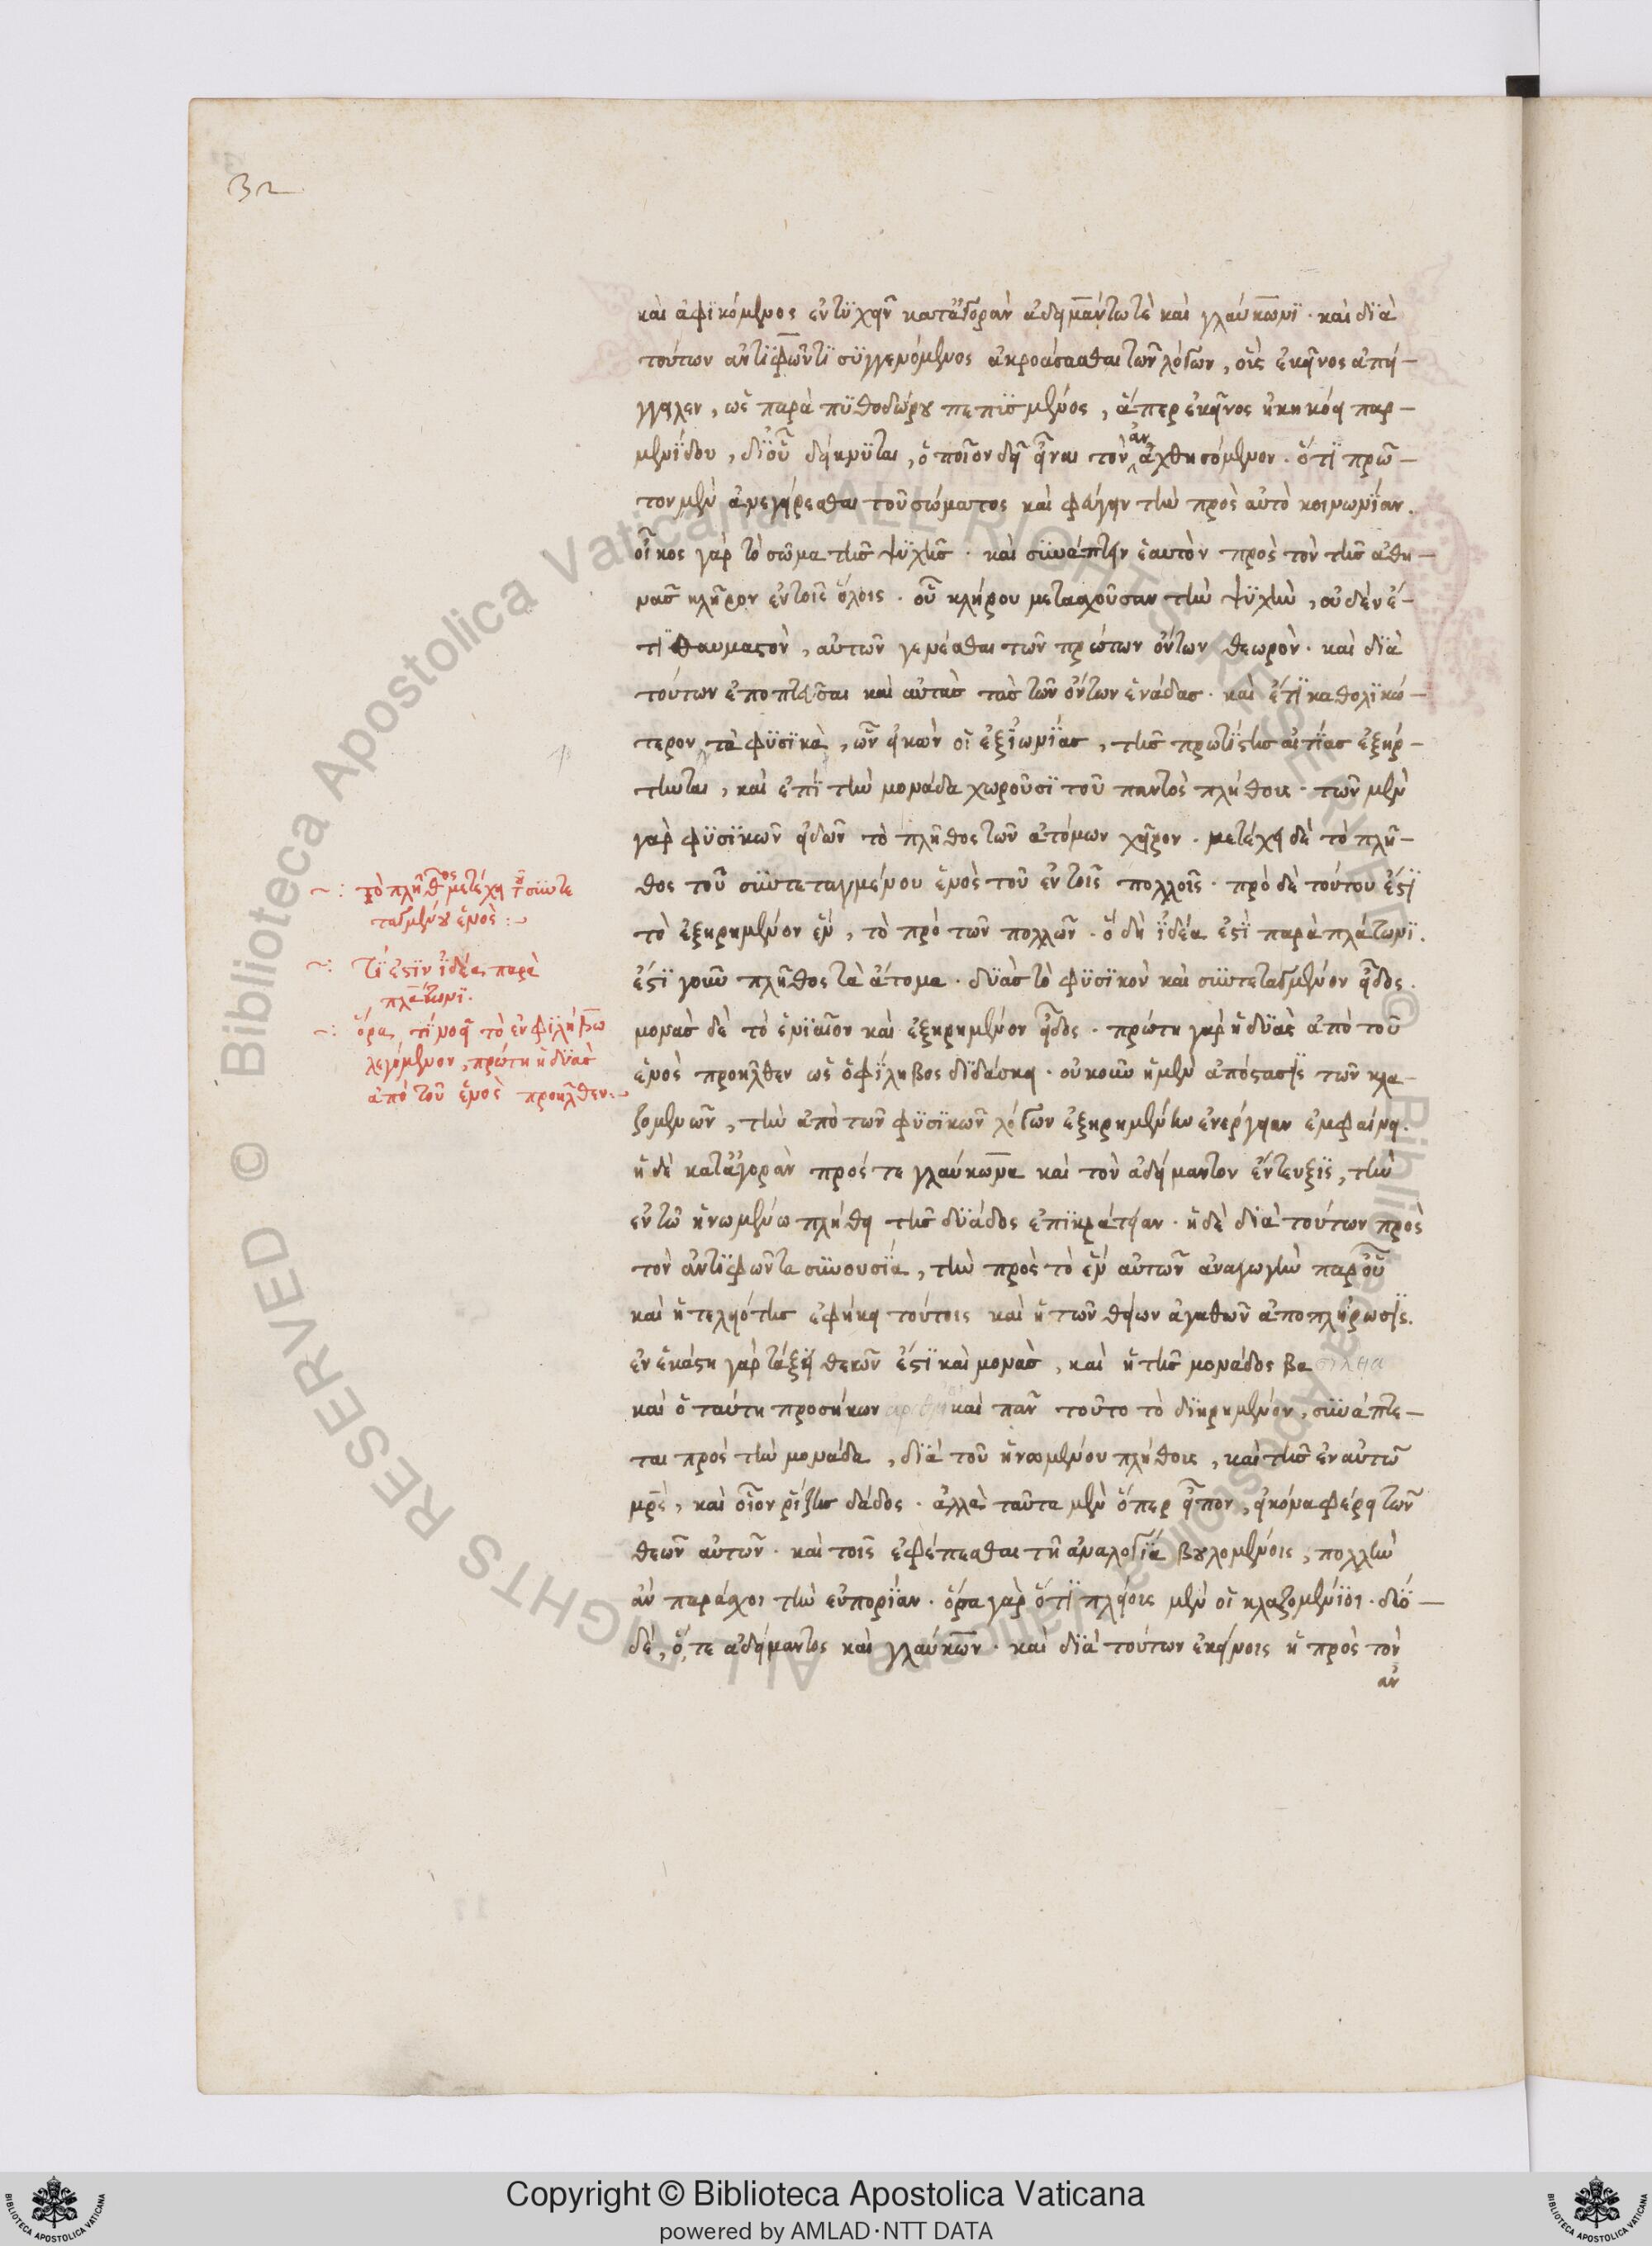 32
καὶ ἀφικόμενος ἐντυχεῖν κατἀγορὰν ἀδειμάντωτὲ καὶ γλαύκωνι. καὶ διὰ
τούτων ἀντιφῶντι συγγενόμενος ἀκροάσασθαι τῶν λόγων, οὓς ἐκεῖνος ἀπή-
γγειλεν, ὡς παρὰ πυθοδώρου πεπυσμένος, ἅπερ ἐκεῖνος ἠκηκόει παρ-
μενίδου, διοῦ δείκνυται, ὁποῖον δεῖ εἶναι τὸν ἀναχθησόμενον. ὅτι πρῶ-
τον μὲν ἀνεγείρεσθαι τοῦ σώματος καὶ φεύγειν τὴν πρὸς αὐτὸ κοινωνίαν.
οἶκος γὰρ τὸ σῶμα τῆς ψυχῆς. καὶ συνάπτειν ἑαυτὸν πρὸς τὸν τῆς ἀθη-
νᾶς κλῆρον ἐν τοῖς ὅλοις. οὗ κλήρου μετασχοῦσαν τὴν ψυχὴν, οὐδὲν ἔ-
τι θαυμαστὸν, αὐτῶν γενέσθαι τῶν πρώτων ὄντων θεωρὸν. καὶ διὰ
τούτων ἐποπτεῦσαι καὶ αὐτὰς τὰς τῶν ὄντων ἑνάδας. καὶ ἔτι καθολικώ-
τερον τὰ φυσικὰ, ὧν εἰκὼν οἱ ἐξ ἰωνίας, τῆς πρωτίστης αἰτίας ἐξήρ-
τηται, καὶ ἐπὶ τὴν μονάδα χωροῦσι τοῦ παντὸς πλήθους. τῶν μὲν
γὰρ φυσικῶν εἰδῶν τὸ πλῆθος τῶν ἀτόμων χεῖρον. μετέχει δὲ τὸ πλῆ-
θος τοῦ συντεταγμένου ἑνὸς τοῦ ἐν τοῖς πολλοῖς. πρὸ δὲ τούτου ἐστὶ
τὸ ἐξῃρημένον ἓν, τὸ πρὸ τῶν πολλῶν. ὃ δὴ ἰδέα ἐστὶ παρὰ πλάτωνι.
ἔστι γοῦν πλῆθος τὰ ἄτομα. δυὰς τὸ φυσικὸν καὶ συντεταγμένον εἶδος.
μονὰς δὲ τὸ ἑνιαῖον καὶ ἐξῃρημένον εἶδος. πρώτη γὰρ ἡ δυὰς ἀπὸ τοῦ
ἑνὸς προῆλθεν ὡς ὁ φίληβος διδάσκει. οὐκοῦν ἡ μὲν ἀπόστασις τῶν κλα-
ζομενῶν, τὴν ἀπὸ τῶν φυσικῶν λόγων ἐξῃρημένην ἐνέργειαν ἐμφαίνει.
ἡ δὲ κατἀγορὰν πρός τε γλαύκωνα καὶ τὸν ἀδείμαντον ἔντευξις, τὴν
ἐν τῷ ἡνωμένω πλήθει τῆς δυάδος ἐπικράτειαν. ἡ δὲ διὰ τούτων πρὸς
τὸν ἀντιφῶντα συνουσία, τὴν πρὸς τὸ ἓν αὐτῶν ἀναγωγὴν παρ οὗ
καὶ ἡ τελειότης ἐφήκει τούτοις καὶ ἡ τῶν θείων ἀγαθῶν ἀποπλήρωσις.
ἐν ἑκάστη γὰρ τάξει θεκῶν ἐστὶ καὶ μονὰς, καὶ ἡ τῆς μονάδος βασιλεία
καὶ ὁ ταύτη προσήκων καὶ πᾶν τοῦτο τὸ διῃρημένον, συνάπτε-
ται πρὸς τὴν μονάδα, διὰ τοῦ ἡνωμένου πλήθους, καὶ τῆς ἐν αὐτῶ
καὶ οἷον ῥίζης δάδος. ἀλλὰ ταῦτα μὲν ὅπερ εἶπον, εἰκόνα φέρει τῶν
θεῶν αὐτῶν. καὶ τοῖς ἐφέπεσθαι τῆ ἀναλογία βουλομένοις, πολλὴν
ἂν παράσχοι τὴν εὐπορίαν. ὅρα γὰρ ὅτι πλείους μὲν οἱ κλαζομένιοι. δύο
δὲ, ὅ τε ἀδείμαντος καὶ γλαύκων. καὶ διὰ τούτων ἐκείνοις ἡ πρὸς τὸν
αν
τὸ πλῆθος μετέχει τοῦ συντε
ταγμένου ἑνὸς:
τί ἐστὶν ἰδέα παρὰ
πλάτωνι.
ὅρα, τί νοεῖ τὸ ἐν φιλήβω
λεγόμενον, πρώτη ἡ δυὰς
ἀπὸ τοῦ ἑνὸς προῆλθεν:
Copyright © Biblioteca Apostolica Vaticana
powered by AMLAD·NTT DATA
© Biblioteca Apostolica Vaticana ALL RIGHTS RESERVED
© Biblioteca Apostolica Vaticana ALL RIGHTS RESERVED
BIBLIOTECA APOSTOLICA VATICANA
BIBLIOTECA APOSTOLICA VATICANA